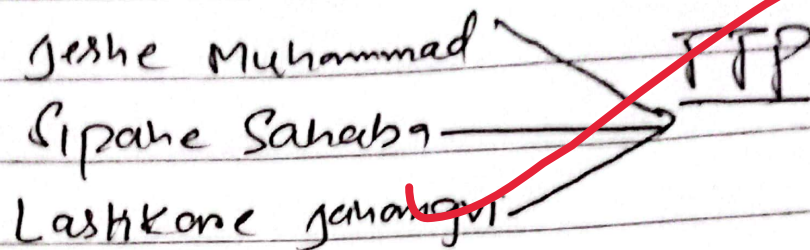 Jeshe Muhammad
TTP
Sipahe Sahaba
Lashkare Jahangvi